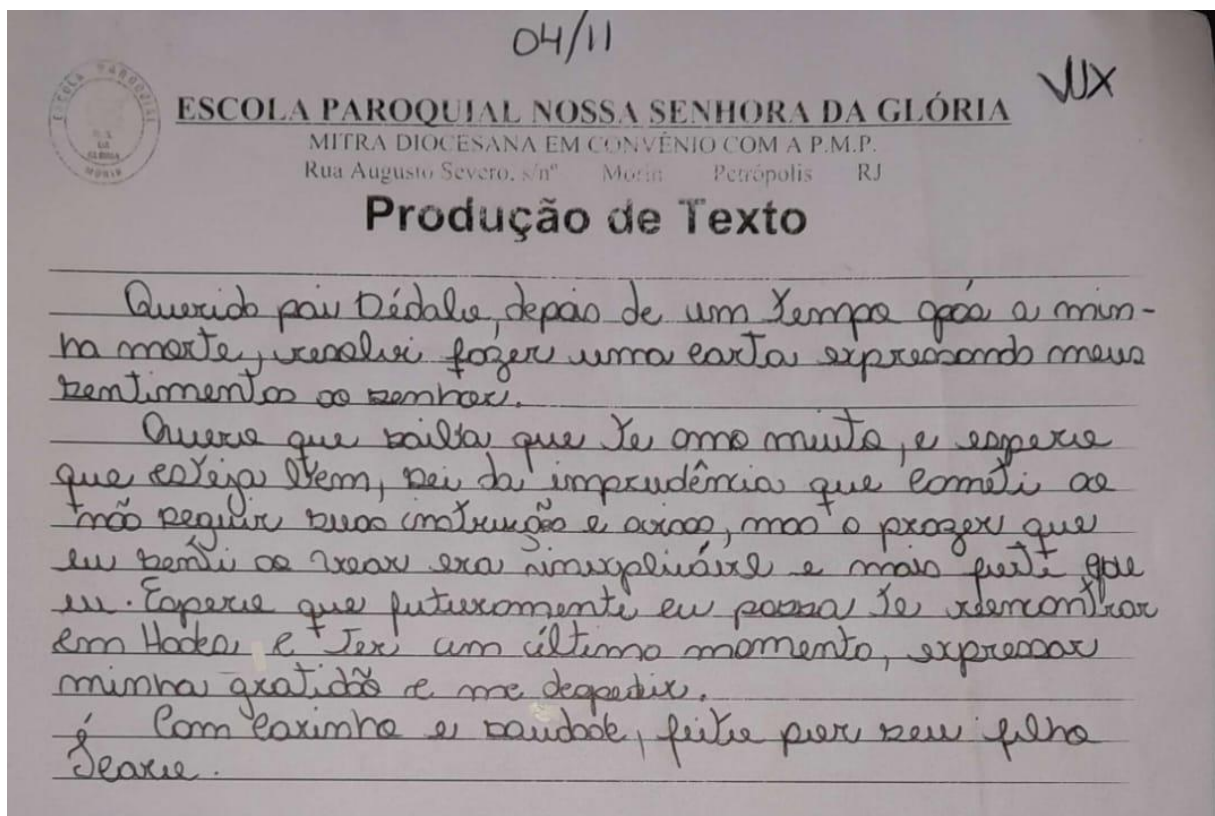 04/11
VUX
ESCOLA PAROQUIAL
N.S.
DA
GLÓRIA
MORIN
ESCOLA PAROQUIAL NOSSA SENHORA DA GLÓRIA
MITRA DIOCESANA EM CONVÊNIO COM A P.M.P.
Rua Augusto Severo, s/nº Morin Petrópolis RJ
Produção de Texto
Querido pai Dédalo, depois de um tempo após a min-
ha morte, resolvi fazer uma carta expressando meus
sentimentos ao senhor.
Quero que saiba que te amo muito, e espero
que esteja bem, sei da imprudência que cometi ao
não seguir suas instruções e avisos, mas o prazer que
eu senti ao voar era inexplicável e mais forte que
eu. Espero que futuramente eu possa te reencontrar
em Hades, e ter um último momento, expressar
minha gratidão e me despedir.
Com carinho e saudade, feito por seu filho
Ícaro.